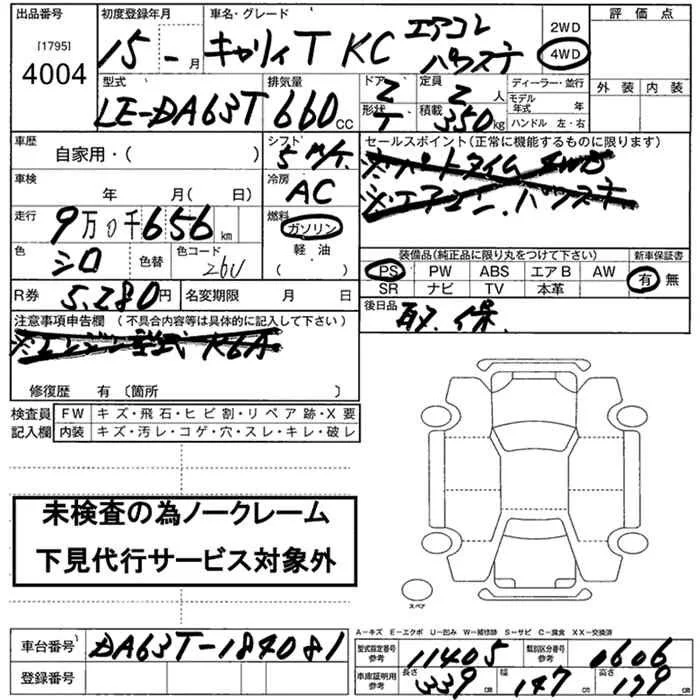 出品番号 初度登録年月 車名・グレード 評価点
[1795]
4004
15 - 月 キャリィT KC エアコン パワステ
2WD
4WD
型式 排気量 ドア 定員 ディーラー・並行 外装 内装
LE-DA63T 660 CC 2 2 人
形状 積載 モデル年式 年
T 350 kg ハンドル 左・右
車歴 シフト セールスポイント(正常に機能するものに限ります)
自家用・( ) 5 M/T
車検 冷房
年 月( 日) AC
走行 燃料
9万0千656 km ガソリン
色 色コード 軽油
シロ 色替 26U ( )
装備品(純正品に限り丸をつけて下さい) 新車保証書
PS PW ABS エアB AW 有 無
SR ナビ TV 本革
R券 5,280円 名変期限 月 日
後日品 取.保.
注意事項申告欄 (不具合内容等は具体的に記入して下さい)
※エンジン型式 K6A
修復歴 有 〔箇所 〕
検査員 FW キズ・飛石・ヒビ割・リペア跡・X要
記入欄 内装 キズ・汚レ・コゲ・穴・スレ・キレ・破レ
未検査の為ノークレーム
下見代行サービス対象外
スペア
A-キズ E-エクボ U-凹み W-補修跡 S-サビ C-腐食 XX-交換済
車台番号 DA63T-184081
登録番号
型式指定番号 参考 11405 類別区分番号 参考 0606
車庫証明用 参考 長さ 339 cm 幅 147 cm 高さ 179 cm